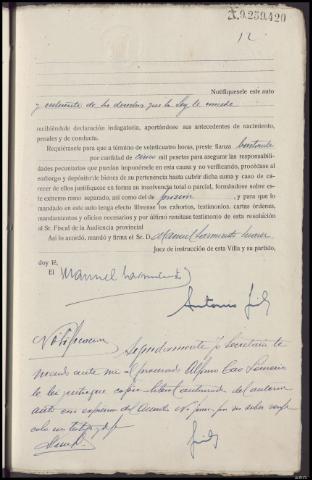 X.9.259.420
12
Notifíquesele este auto
y entérasele de los derechos que la Ley le concede
recibiéndole declaración indagatoria, aportándose sus antecedentes de nacimiento,
penales y de conducta.
Requiérasele para que a término de veinticuatro horas, preste fianza bastante
por cantidad de cinco mil pesetas para asegurar las responsabili-
dades pecuniarias que puedan imponérsele en esta causa y no verificándolo, procédase al
embargo y depósito de bienes de su pertenencia hasta cubrir dicha suma y caso de care-
cer de ellos justifíquese en forma su insolvencia total o parcial, formándose sobre es-
te extremo ramo separado, así como del de prisión, y para que lo
mandado en este auto tenga efecto líbrense los exhortos, testimonios, cartas órdenes,
mandamientos y oficios necesarios y por último remítase testimonio de esta resolución
al Sr. Fiscal de la Audiencia provincial
Así lo acordó, mandó y firma el Sr. D. Manuel Sarmiento Suarez
Juez de instrucción de esta Villa y su partido,
doy fé,
El
Manuel Sarmiento
Antonio
Notificacion Seguidamente yo Secretario te-
niendo ante mi al procesado Alfonso Cao
le lei entregue copia literal autorizada del anterior
auto